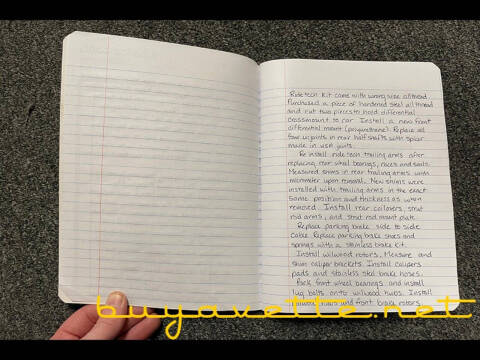 Ride tech kit came with wrong size allthread.
Purchased a piece of hardened steel all thread
and cut two pieces to hold differential
crossmount to car. Install a new front
differential mount (polyurethane). Replace all
four u-joints in rear half shafts with spicer
made in usa joints.
Re install ride tech trailing arms after
replacing rear wheel bearings, races and seals.
Measured shims in rear trailing arms with
micrometer upon removal. New shims were
installed with trailing arms in the exact
same position and thickness as when
removed. Install rear coilovers, strut
rod arms, and strut rod mount plate.
Replace parking brake side to side
cable. Replace parking brake shoes and
springs with a stainless brake kit.
Install wilwood rotors. Measure and
shim caliper brackets. Install calipers
pads and stainless steel brake hoses.
Pack front wheel bearings and install
lug bolts onto wilwood hubs. Install
wilwood hubs and front brake rotors.
buyavette.net